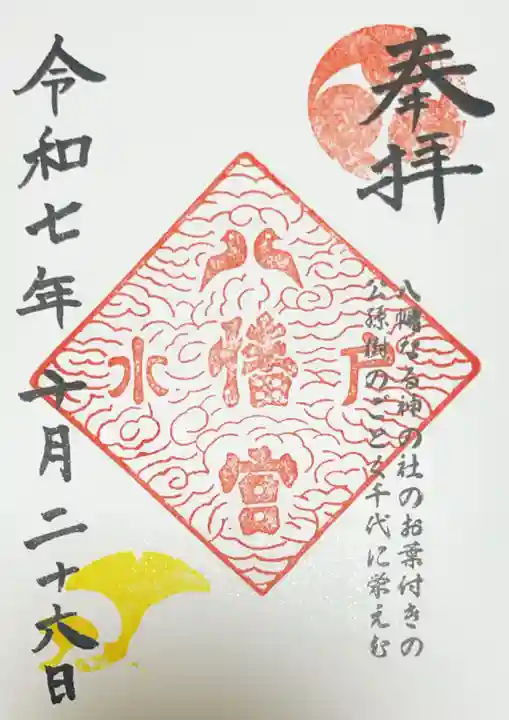 奉拝
八幡なる神の社のお葉付きの
公孫樹のごと久千代に栄えむ
水戸
八幡宮
令和七年 十月二十六日